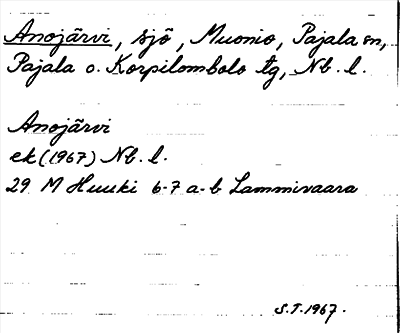 Anojärvi, sjö, Muonio, Pajala sn,
Pajala o. Korpilombolo tg, Nb. l.
Anojärvi
ek (1967) Nb. l.
29 M Huuki 6-7 a-b Lammivaara
S.T. 1967.